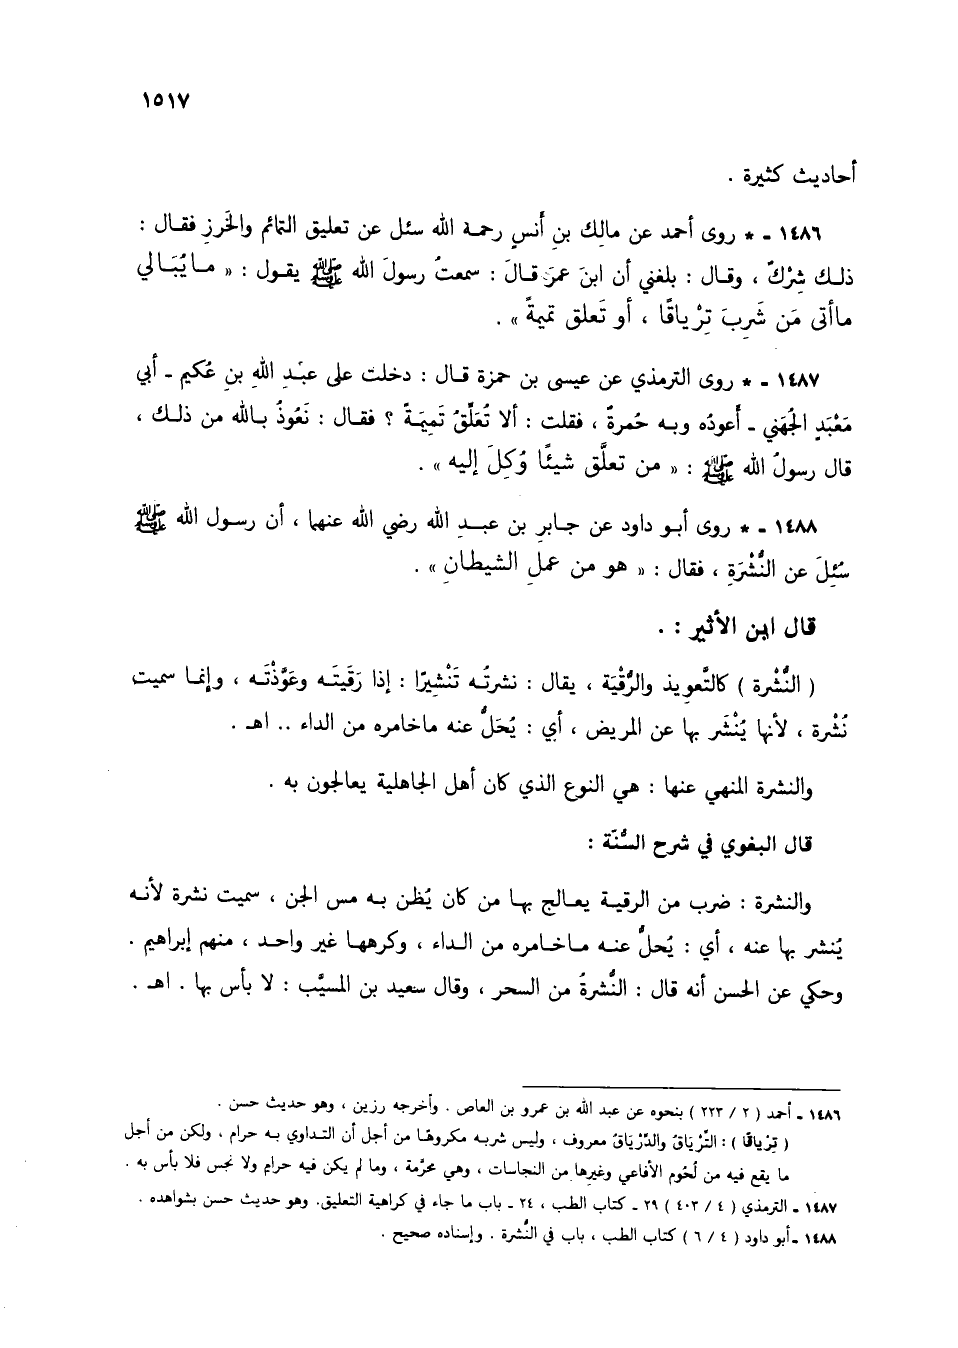 ١٥١٧
أحاديث كثيرة .
١٤٨٦ - * روى أحمد عن مالِك بنِ أَنسٍ رحمه الله سئل عن تعليق التمائم والخَرزِ فقال :
ذلك شِرْكٌ ، وقال : بلغني أن ابنَ عمَرَ قالَ : سمعتُ رسولَ الله ﷺ يقول : « ما يُبَالي
ماأتى مَن شَرِبَ تِرْياقًا ، أو تَعلق تميمةً » .
١٤٨٧ - * روى الترمذي عن عيسى بن حمزة قال : دخلت على عبْدِ اللهِ بنِ عُكيم - أبي
مَعْبَدٍ الجُهَني - أَعودُه وبه حُمرةٌ ، فقلت : ألا تُعَلِّقُ تَمِيمَةً ؟ فقال : نَعُوذُ بالله من ذلك ،
قال رسولُ الله ﷺ : « من تعلَّق شيئًا وُكِلَ إليه » .
١٤٨٨ - * روى أبو داود عن جابر بن عبد الله رضي الله عنهما ، أن رسول الله ﷺ
سُئِلَ عن النُّشْرَةِ ، فقال : « هو من عملِ الشيطانِ » .
قال ابن الأثير : .
( النُّشْرة ) كالتَّعويذ والرُّقْيَة ، يقال : نشرتُه تَنْشِيرًا : إذا رَقَيتَه وعَوَّذْتَه ، وإنما سميت
نُشْرة ، لأنها يُنْشَر بها عن المريض ، أي : يُحَلُّ عنه ماخامره من الداء .. اهـ .
والنشرة المنهي عنها : هي النوع الذي كان أهل الجاهلية يعالجون به .
قال البغوي في شرح السُّنَّة :
والنشرة : ضرب من الرقية يعالج بها من كان يُظن به مس الجن ، سميت نشرة لأنه
يُنشر بها عنه ، أي : يُحلُّ عنه ماخامره من الداء ، وكرهها غير واحد ، منهم إبراهيم .
وحكي عن الحسن أنه قال : النُّشرةُ من السحر ، وقال سعيد بن المسيَّب : لا بأس بها . اهـ .
١٤٨٦ - أحمد ( ٢ / ٢٢٣ ) بنحوه عن عبد الله بن عمرو بن العاص . وأخرجه رزين ، وهو حديث حسن .
( تِرْياقًا ) : التِّرْيَاقُ والدِّرْيَاقُ معروف ، وليس شربه مكروهًا من أجل أن التداوي به حرام ، ولكن من أجل
ما يقع فيه من لُحُوم الأفاعي وغيرها من النجاسات ، وهي محرَّمة ، وما لم يكن فيه حرام ولا نجس فلا بأس به .
١٤٨٧ - الترمذي ( ٤ / ٤٠٣ ) ٢٩ - كتاب الطب ، ٢٤ - باب ما جاء في كراهية التعليق. وهو حديث حسن بشواهده .
١٤٨٨ -أبو داود ( ٤ / ٦ ) كتاب الطب ، باب في النُّشرة . وإسناده صحيح .